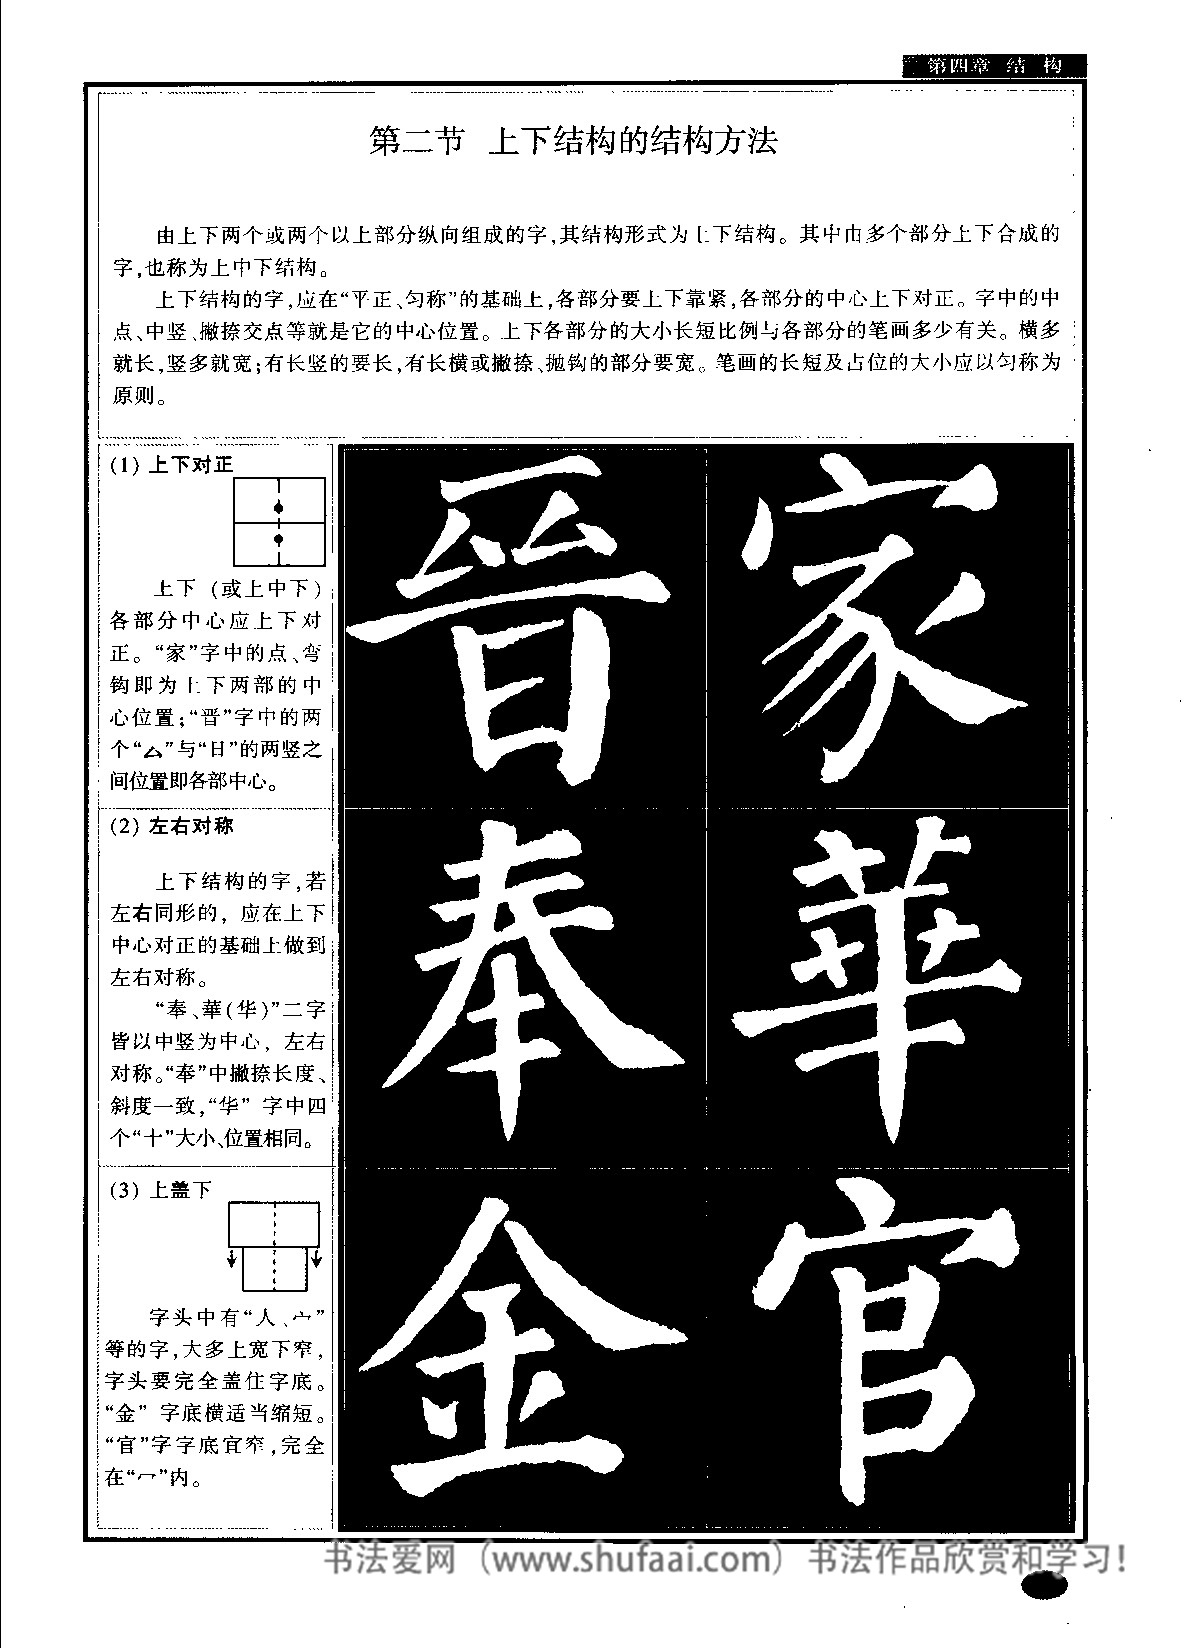 第四章 结 构
第二节 上下结构的结构方法
由上下两个或两个以上部分纵向组成的字,其结构形式为上下结构。其中由多个部分上下合成的
字,也称为上中下结构。
上下结构的字,应在“平正、匀称”的基础上,各部分要上下靠紧,各部分的中心上下对正。字中的中
点、中竖、撇捺交点等就是它的中心位置。上下各部分的大小长短比例与各部分的笔画多少有关。横多
就长,竖多就宽;有长竖的要长,有长横或撇捺、抛钩的部分要宽。笔画的长短及占位的大小应以匀称为
原则。
(1) 上下对正
上下 (或上中下)
各部分中心应上下对
正。“家”字中的点、弯
钩即为上下两部的中
心位置;“晋”字中的两
个“厶”与“日”的两竖之
间位置即各部中心。
晋 家
(2) 左右对称
上下结构的字,若
左右同形的, 应在上下
中心对正的基础上做到
左右对称。
“奉、華(华)”二字
皆以中竖为中心, 左右
对称。“奉”中撇捺长度、
斜度一致,“华” 字中四
个“十”大小、位置相同。
奉 華
(3) 上盖下
字头中有“人、宀”
等的字,大多上宽下窄,
字头要完全盖住字底。
“金” 字底横适当缩短。
“官”字字底宜窄,完全
在“冖”内。
金 官
书法爱网（www.shufaai.com）书法作品欣赏和学习！